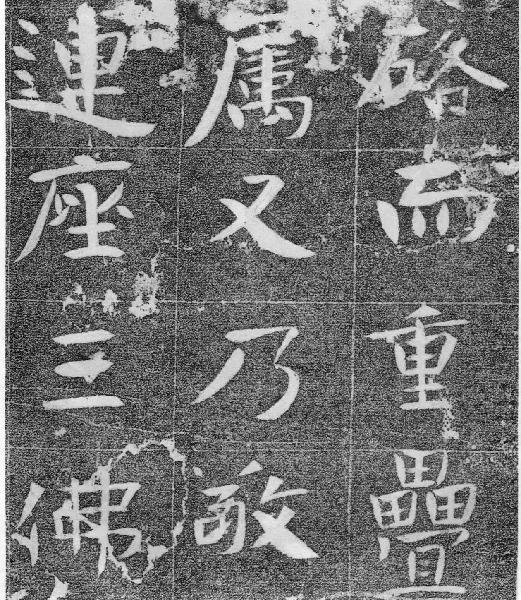 硌而重疊
厲又乃敞
連座三佛